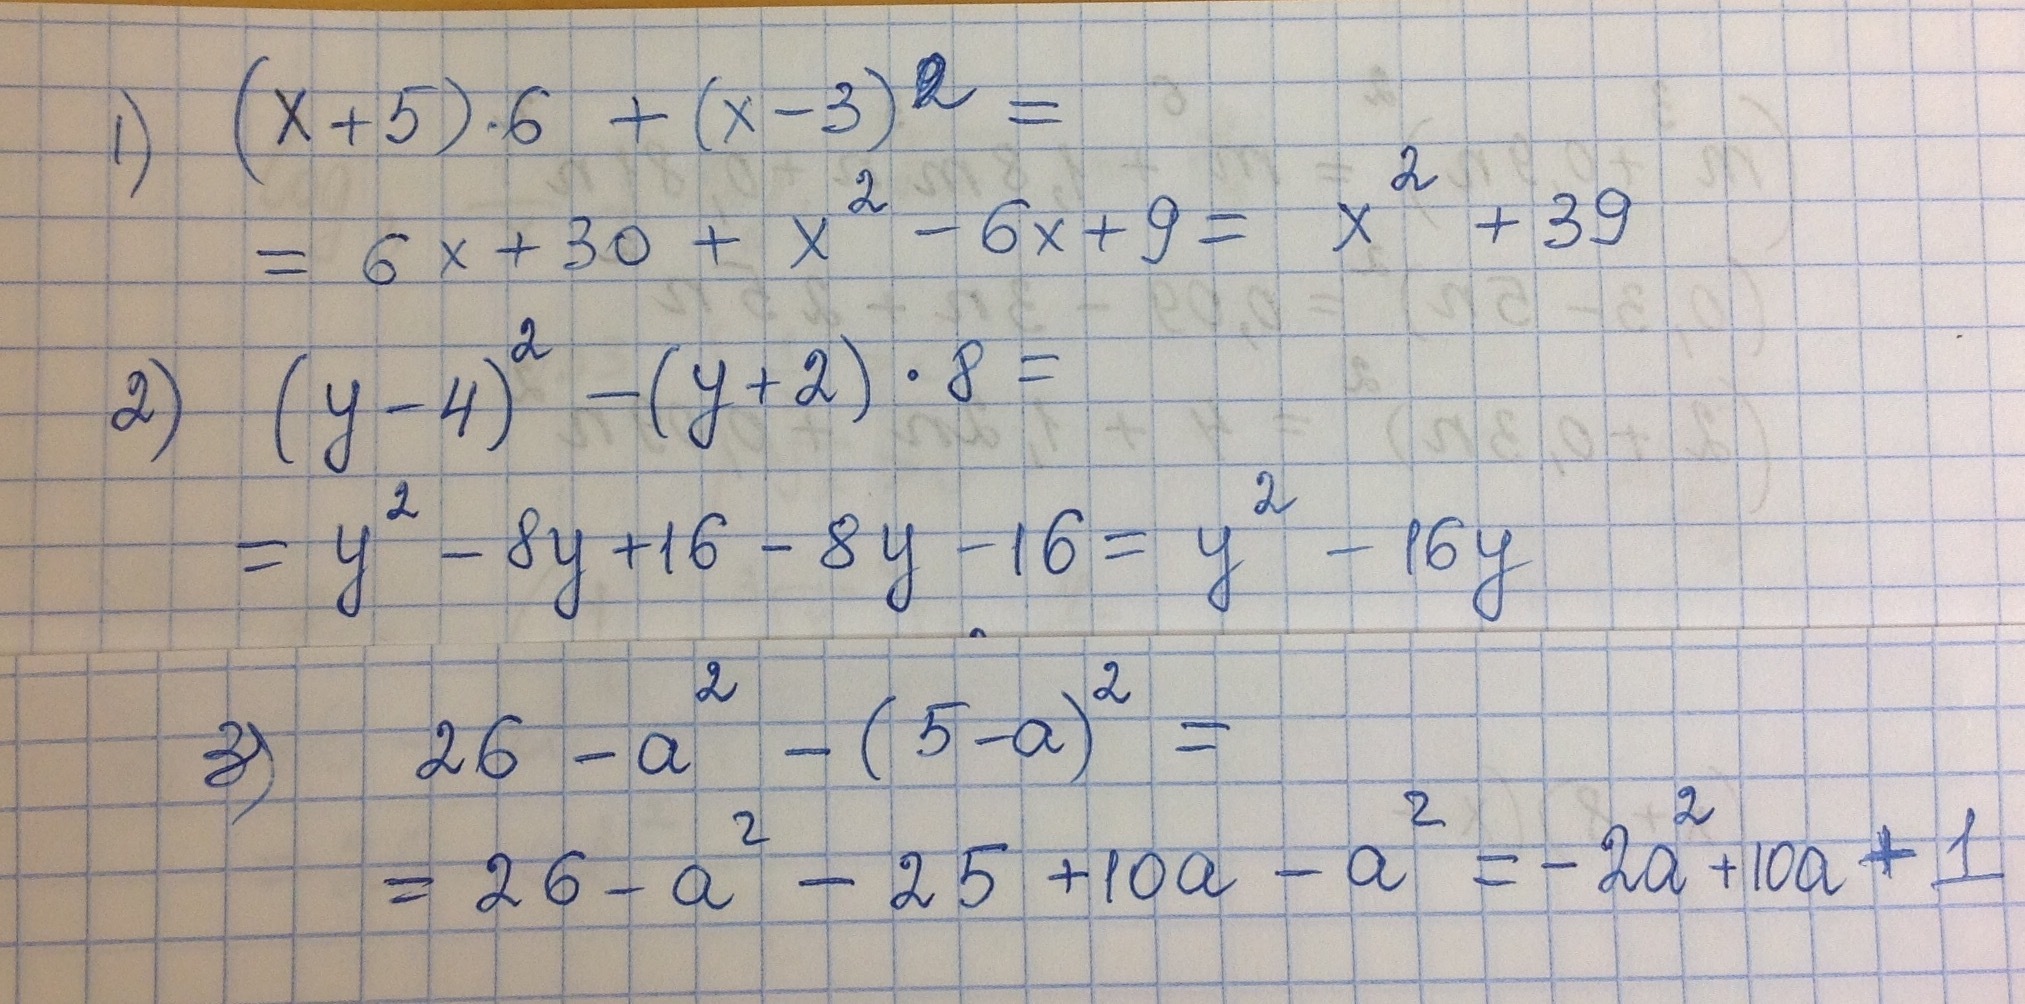 1) (x+5)·6 + (x-3)² =
= 6x+30 + x² - 6x+9 = x² + 39
2) (y-4)² - (y+2)·8 =
= y² - 8y+16 - 8y - 16 = y² - 16y
3) 26 - a² - (5-a)² =
= 26 - a² - 25 + 10a - a² = -2a² + 10a + 1